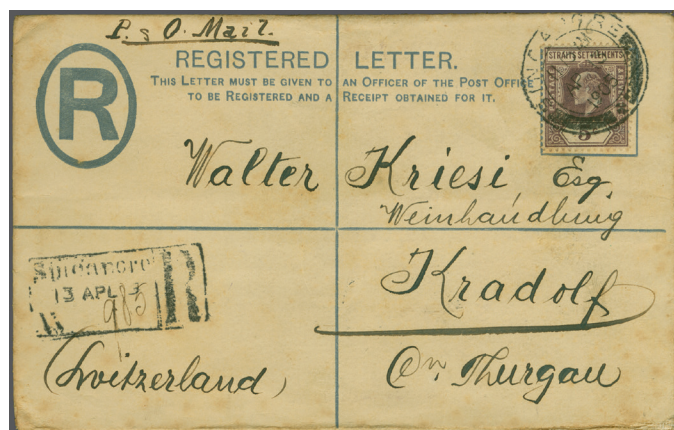 P. & O. Mail.
R
REGISTERED LETTER.
THIS LETTER MUST BE GIVEN TO AN OFFICER OF THE POST OFFICE
TO BE REGISTERED AND A RECEIPT OBTAINED FOR IT.
STRAITS SETTLEMENTS
5
Walter Kriesi, Esq,
Weinhandlung
Kradolf
13 APL
R
985
(Switzerland) Ct. Thurgau